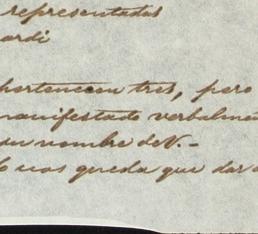 representadas
ardi
hortencean tres, pero
manifestado verbalmen
su nombre de V. -
nos queda que dar